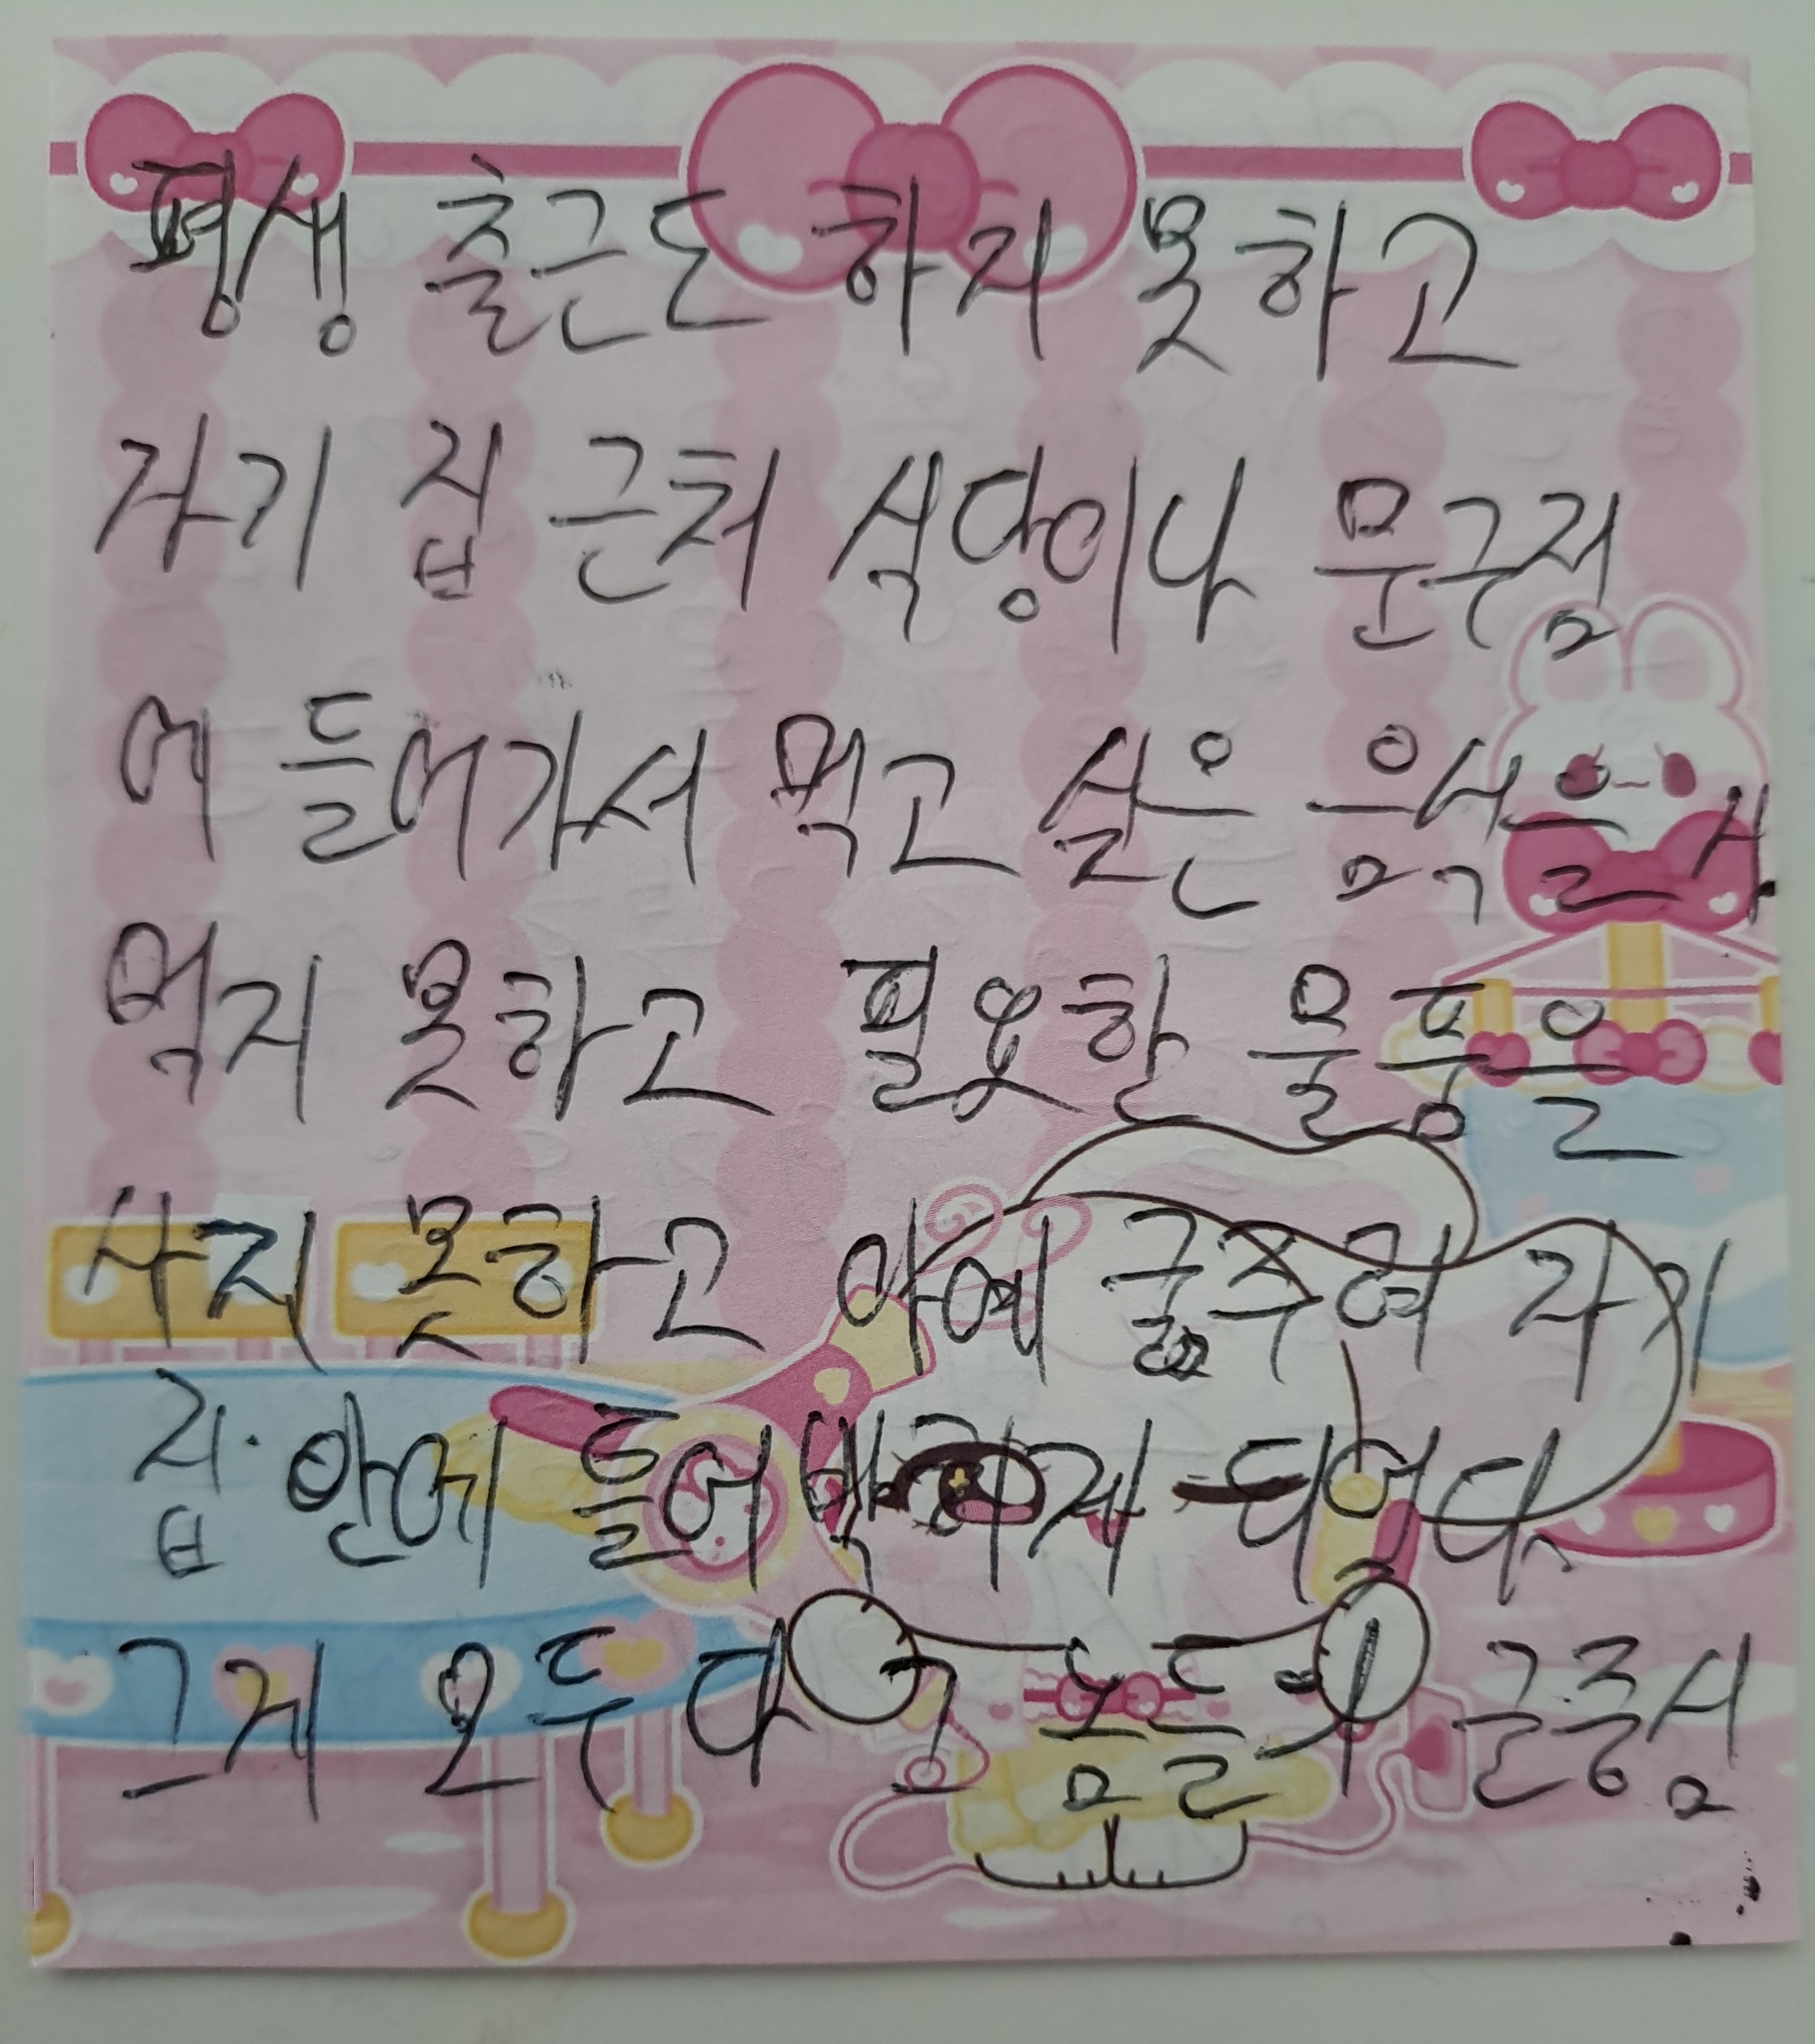 평생 출근도 하지 못하고
자기 집 근처 식당이나 문구점
에 들어가서 먹고 싶은 음식을 사
먹지 못하고 필요한 물품을
사지 못하고 아예 굶주여 자기
집 안에 들어 박히게 되었다.
그게 모두 다 그 놈들의 근중심